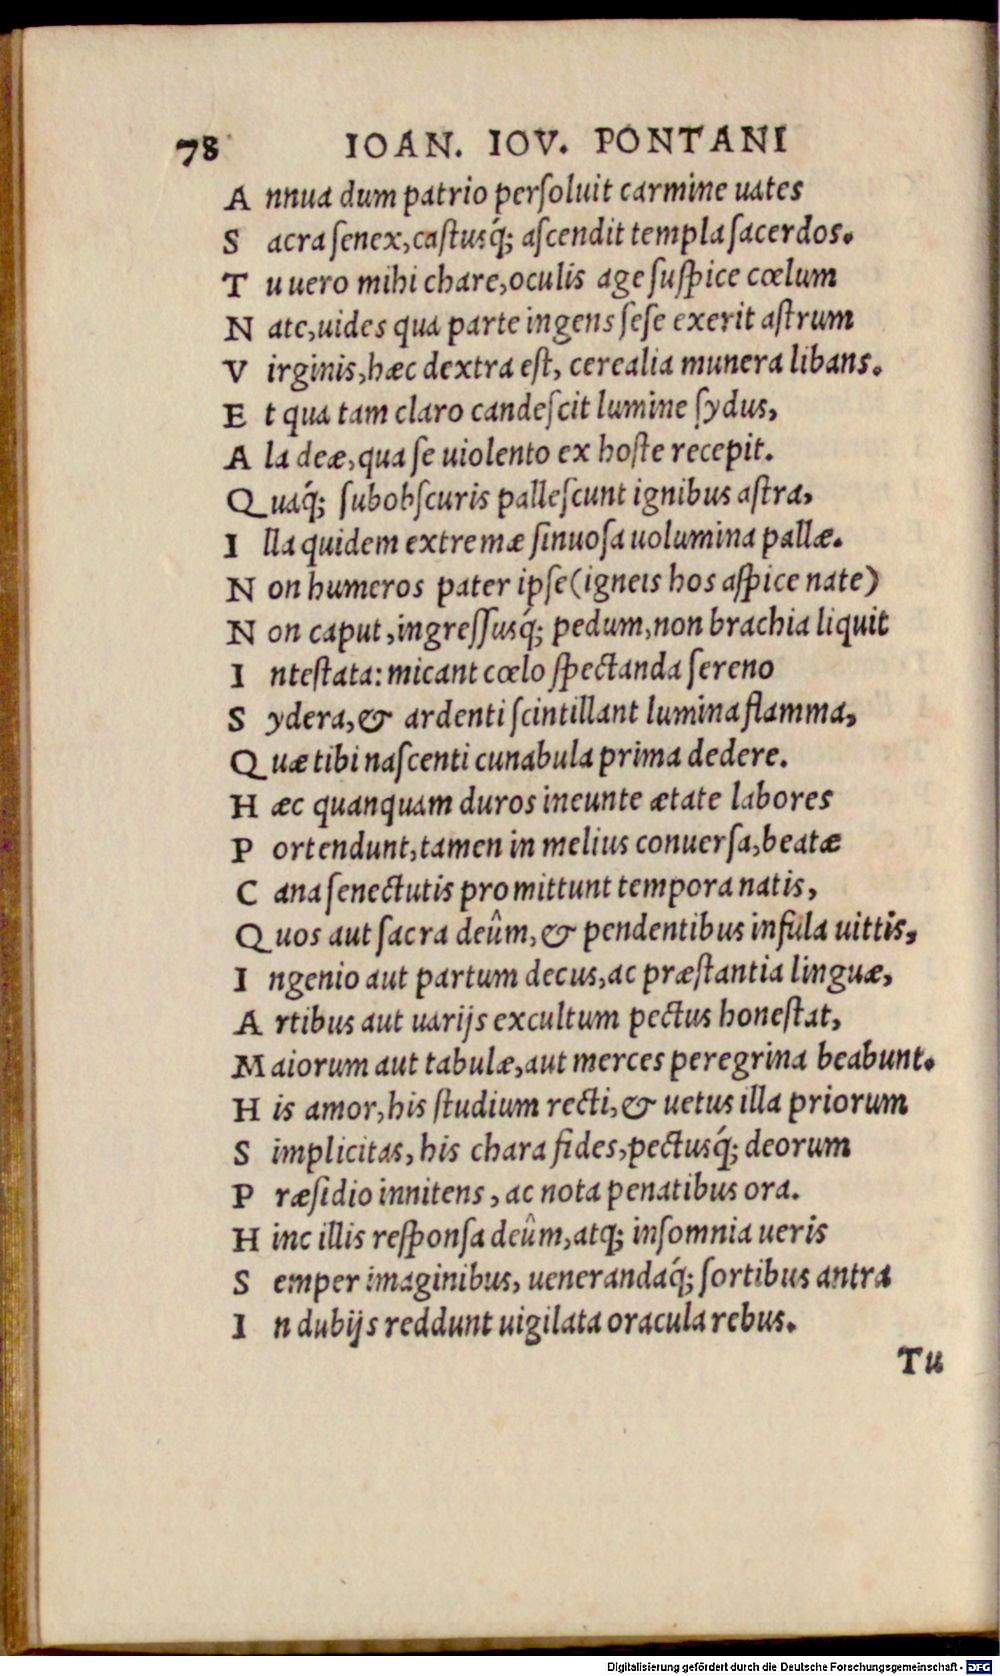 78 IOAN. IOV. PONTANI
A nnua dum patrio persoluit carmine uates
S acra senex, castusq́; ascendit templa sacerdos.
T u uero mihi chare, oculis age suspice cœlum
N ate, uides qua parte ingens sese exerit astrum
V irginis, hæc dextra est, cerealia munera libans.
E t qua tam claro candescit lumine sydus,
A la deæ, qua se uiolento ex hoste recepit.
Q uaq́; subobscuris pallescunt ignibus astra,
I lla quidem extremæ sinuosa uolumina pallæ.
N on humeros pater ipse (igneis hos aspice nate)
N on caput, ingressusq́; pedum, non brachia liquit
I ntestata: micant cœlo spectanda sereno
S ydera, & ardenti scintillant lumina flamma,
Q uæ tibi nascenti cunabula prima dedere.
H æc quanquam duros ineunte ætate labores
P ortendunt, tamen in melius conuersa, beatæ
C ana senectutis promittunt tempora natis,
Q uos aut sacra deûm, & pendentibus infula uittis,
I ngenio aut partum decus, ac præstantia linguæ,
A rtibus aut uarijs excultum pectus honestat,
M aiorum aut tabulæ, aut merces peregrina beabunt.
H is amor, his studium recti, & uetus illa priorum
S implicitas, his chara fides, pectusq́; deorum
P ræsidio innitens, ac nota penatibus ora.
H inc illis responsa deûm, atq; insomnia ueris
S emper imaginibus, uenerandaq́; sortibus antra
I n dubijs reddunt uigilata oracula rebus.
Tu
Digitalisierung gefördert durch die Deutsche Forschungsgemeinschaft - DFG